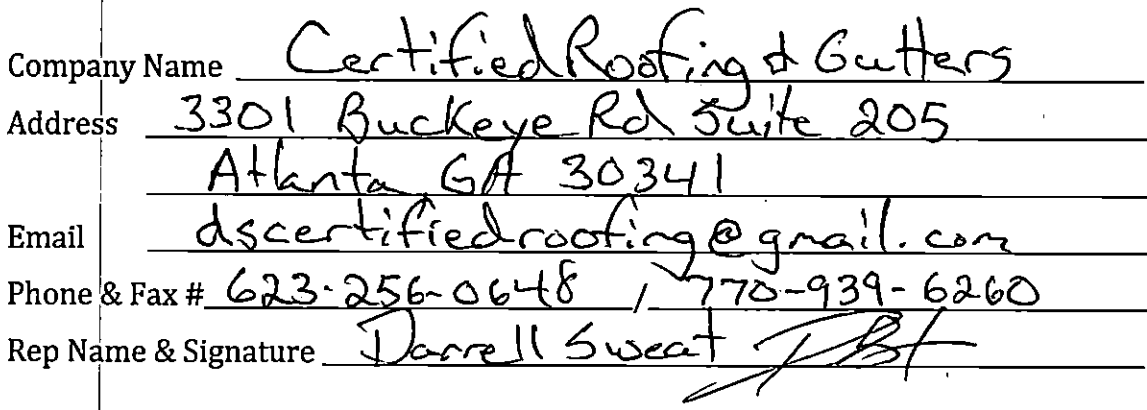 Company Name Certified Roofing & Gutters
Address 3301 Buckeye Rd Suite 205
Atlanta, GA 30341
Email dscertifiedroofing@gmail.com
Phone & Fax # 623-256-0648 / 770-939-6260
Rep Name & Signature Darrell Sweat